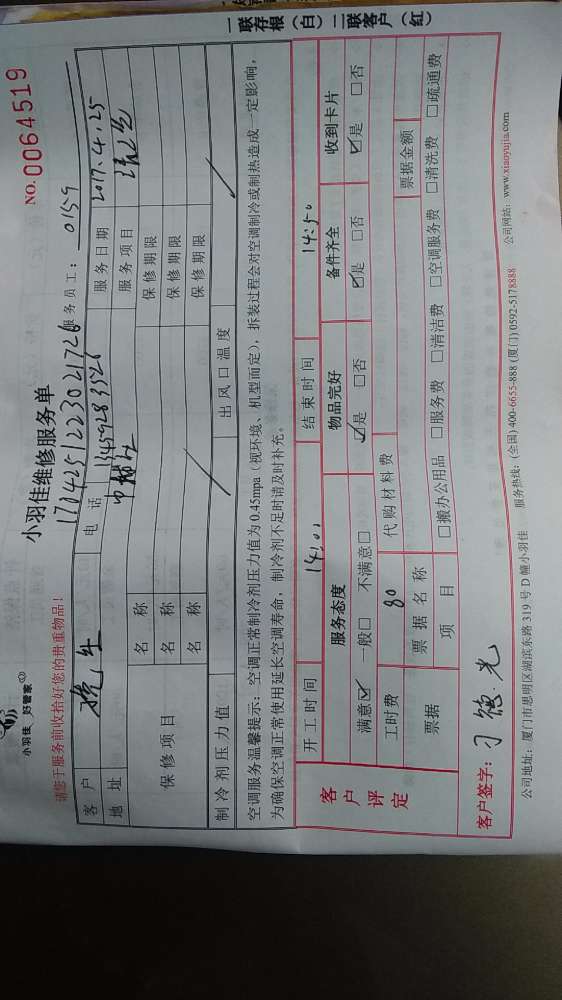 一联存根（白）二联客户（红）
小羽佳 好管家
小羽佳维修服务单
NO.0064519
170425122302172
请您于服务前收拾好您的贵重物品！
服务员工：0159
客户 电话 13459283526 服务日期 2017.4.25
地址 服务项目
保修项目 名称 保修期限
名称 保修期限
名称 保修期限
制冷剂压力值 出风口温度
空调服务温馨提示：空调正常制冷剂压力值为0.45mpa（视环境、机型而定），拆装过程会对空调制冷或制热造成一定影响，
为确保空调正常使用延长空调寿命，制冷剂不足时请及时补充。
客户评定
开工时间 14:01 结束时间 14:50
服务态度 物品完好 备件齐全 收到卡片
满意☑ 一般□ 不满意□ ☑是 □否 ☑是 □否 ☑是 □否
工时费 80 代购材料费
票据 票据名称 票据金额
项目 □搬办公用品 □服务费 □清洁费 □空调服务费 □清洗费 □疏通费
客户签字：刁德光
公司地址：厦门市思明区湖滨东路319号D幢小羽佳 服务热线：(全国)400-6655-888 (厦门)0592-5178888 公司网站：www.xiaoyujia.com